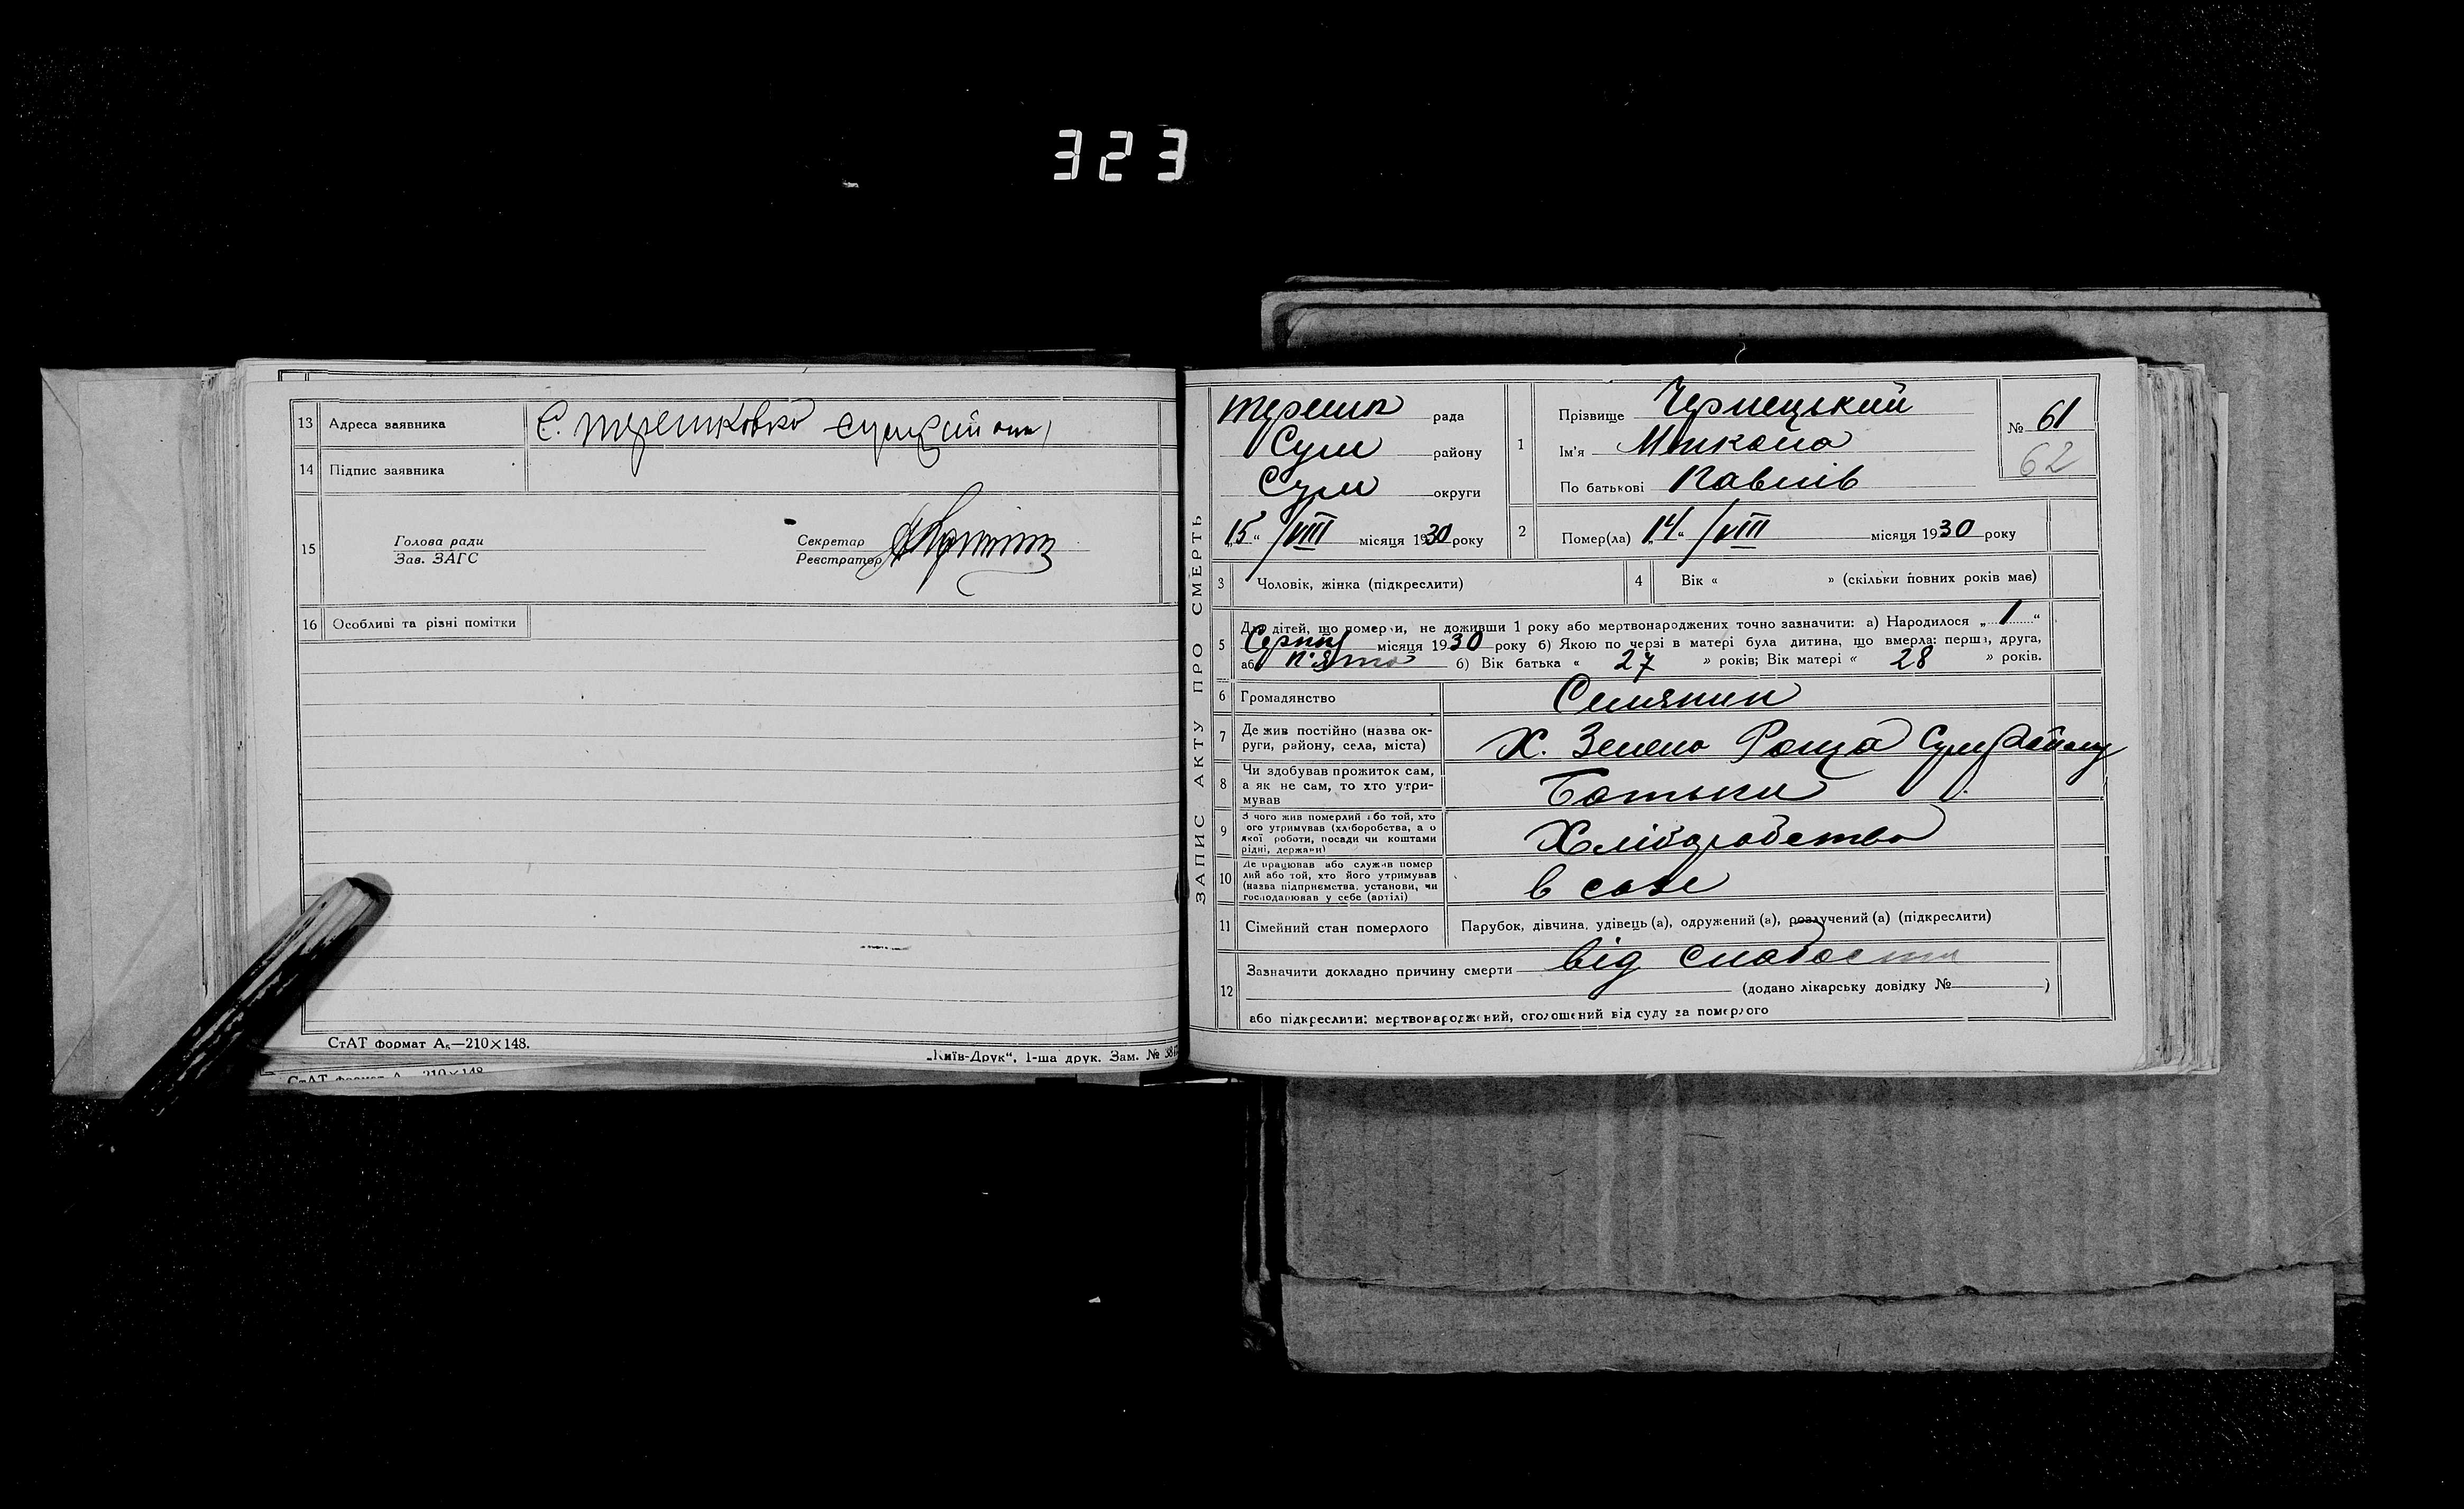 323
13 Адреса заявника С. Терешковка
14 Підпис заявника
15 Голова ради
Зав. ЗАГС
Секретар
Реєстратор
16 Особливі та різні помітки
СтАТ формат А₅—210×148.
„Київ-Друк“, 1-ша друк. Зам. №
СтАТ формат А 210×148
ЗАПИС АКТУ ПРО СМЕРТЬ
Терешк рада
Сум району
Сум округи
„15“ /VIII місяця 1930 року
1 Прізвище Чернецький
Ім'я Микола
По батькові Павлів
№ 61
62
2 Помер(ла) „14“ /VIII місяця 1930 року
3 Чоловік, жінка (підкреслити)
4 Вік « » (скільки повних років має)
5 Для дітей, що померли, не доживши 1 року або мертвонароджених точно зазначити: а) Народилося „1“
Серпня місяця 1930 року б) Якою по черзі в матері була дитина, що вмерла: перша, друга,
або п'ята б) Вік батька « 27 » років; Вік матері « 28 » років.
6 Громадянство Селянин
7 Де жив постійно (назва ок-
руги, району, села, міста) Х. Зелена Роща Сум району
8 Чи здобував прожиток сам,
а як не сам, то хто утри-
мував Батьки
9 З чого жив померлий або той, хто
його утримував (хліборобства, а о
якої роботи, посади чи коштами
рідні, держави) Хліборобство
10 Де працював або служив помер
лий або той, хто його утримував
(назва підприємства, установи, чи
господарював у себе (артілі) в себе
11 Сімейний стан померлого Парубок, дівчина, удівець (а), одружений (а), розлучений (а) (підкреслити)
12 Зазначити докладно причину смерти від слабости
(додано лікарську довідку № )
або підкреслити: мертвонароджений, оголошений від суду за померлого